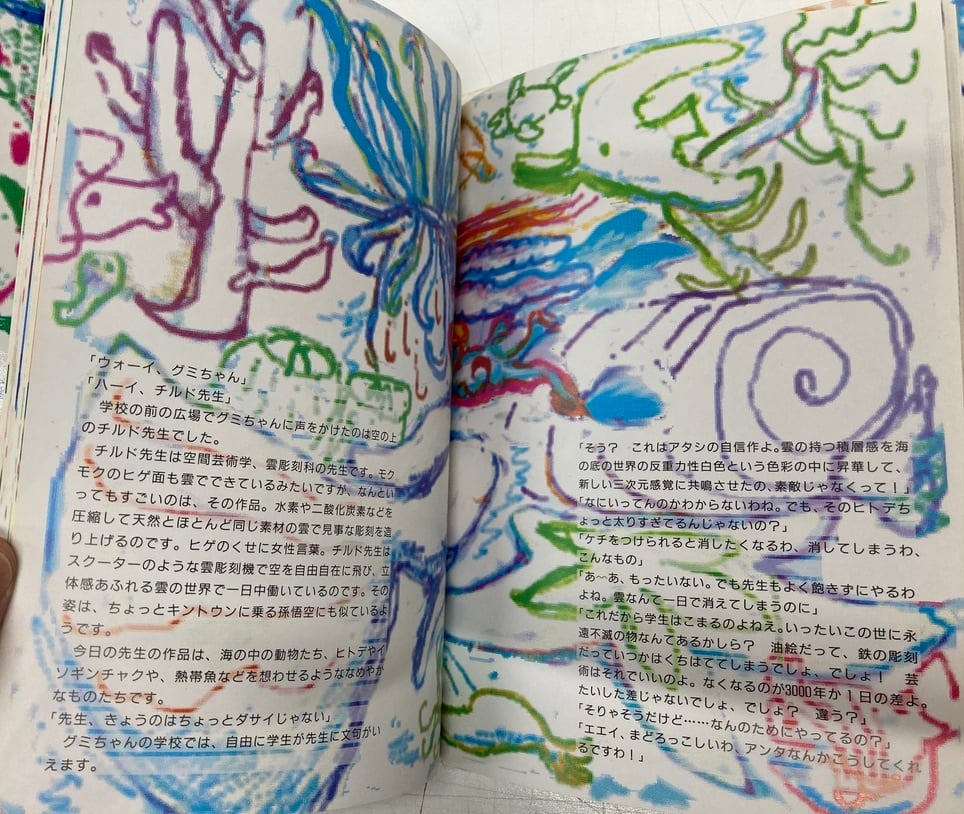 「ウォーイ、グミちゃん」
「ハーイ、チルド先生」
　学校の前の広場でグミちゃんに声をかけたのは空の上
のチルド先生でした。
　チルド先生は空間芸術学、雲彫刻科の先生です。モク
モクのヒゲ面も雲でできているみたいですが、なんとい
ってもすごいのは、その作品。水素や二酸化炭素などを
圧縮して天然とほとんど同じ素材の雲で見事な彫刻を造
り上げるのです。ヒゲのくせに女性言葉。チルド先生は
スクーターのような雲彫刻機で空を自由自在に飛び、立
体感あふれる雲の世界で一日中働いているのです。その
姿は、ちょっとキントウンに乗る孫悟空にも似ているよ
うです。
　今日の先生の作品は、海の中の動物たち、ヒトデやイ
ソギンチャクや、熱帯魚などを想わせるようななめやか
なものたちです。
「先生、きょうのはちょっとダサイじゃない」
　グミちゃんの学校では、自由に学生が先生に文句がい
えます。
「そう？　これはアタシの自信作よ。雲の持つ積層感を海
の底の世界の反重力性白色という色彩の中に昇華して、
新しい三次元感覚に共鳴させたの、素敵じゃなくって！」
「なにいってんのかわからないわね。でも、そのヒトデち
ょっと太りすぎてるんじゃないの？」
「ケチをつけられると消したくなるわ、消してしまうわ、
こんなもの」
「あ〜あ、もったいない。でも先生もよく飽きずにやるわ
よね。雲なんて一日で消えてしまうのに」
「これだから学生はこまるのよねえ。いったいこの世に永
遠不滅の物なんてあるかしら？　油絵だって、鉄の彫刻
だっていつかはくちはててしまうでしょ、でしょ！　芸
術はそれでいいのよ。なくなるのが3000年か１日の差よ。
たいした差じゃないでしょ、でしょ？　違う？」
「そりゃそうだけど……なんのためにやってるの？」
「エエイ、まどろっこしいわ、アンタなんかこうしてくれ
るですわ！」